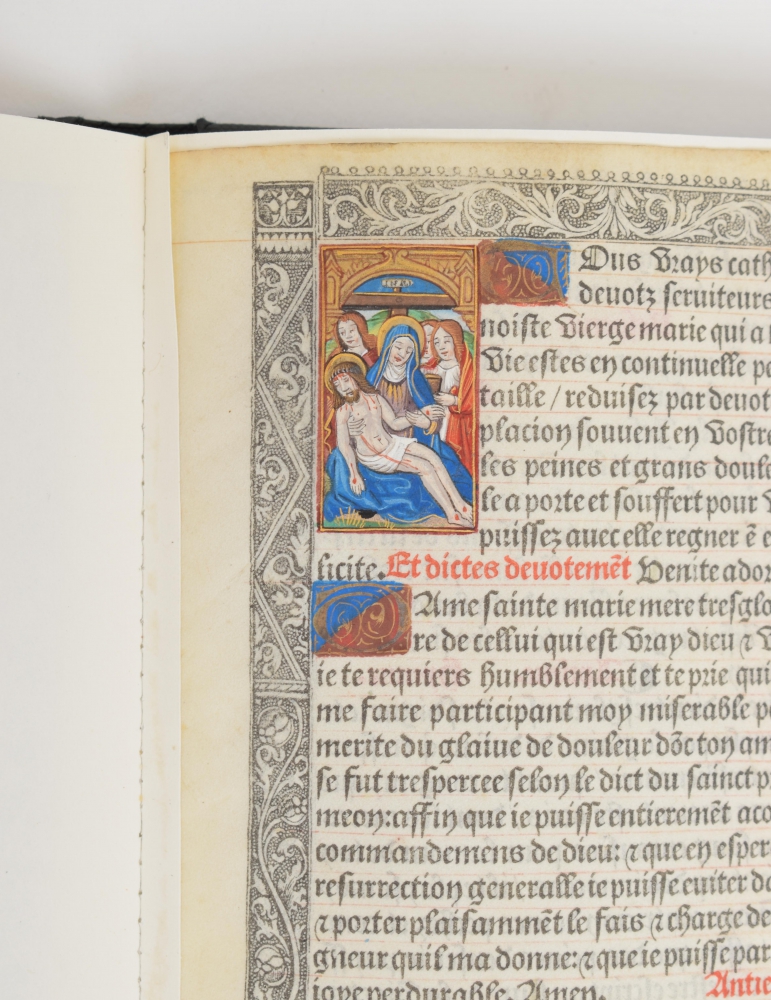 INRI
Ous Vrays cath
deuotz seruiteurs
noiste Vierge marie qui a
Vie estes en continuelle pe
taille / reduisez par deuot
placion souuent en Vostre
les peines et grans doule
le a porte et souffert pour V
puissez auec elle regner ē c
licite. Et dictes deuotemēt Venite ador
Ame sainte marie mere tresglo
re de cellui qui est Vray dieu ⁊ V
ie te requiers humblement et te prie qui
me faire participant moy miserable pe
merite du glaiue de douleur dōc ton am
se fut trespercee selon le dict du sainct p
meon: affin que ie puisse entieremēt aco
commandemens de dieu: ⁊ que en esper
resurrection generalle ie puisse euiter da
⁊ porter plaisammēt le fais ⁊ charge de
gneur quil ma donne: ⁊ que ie puisse par
ioye perdurable. Amen. Antie